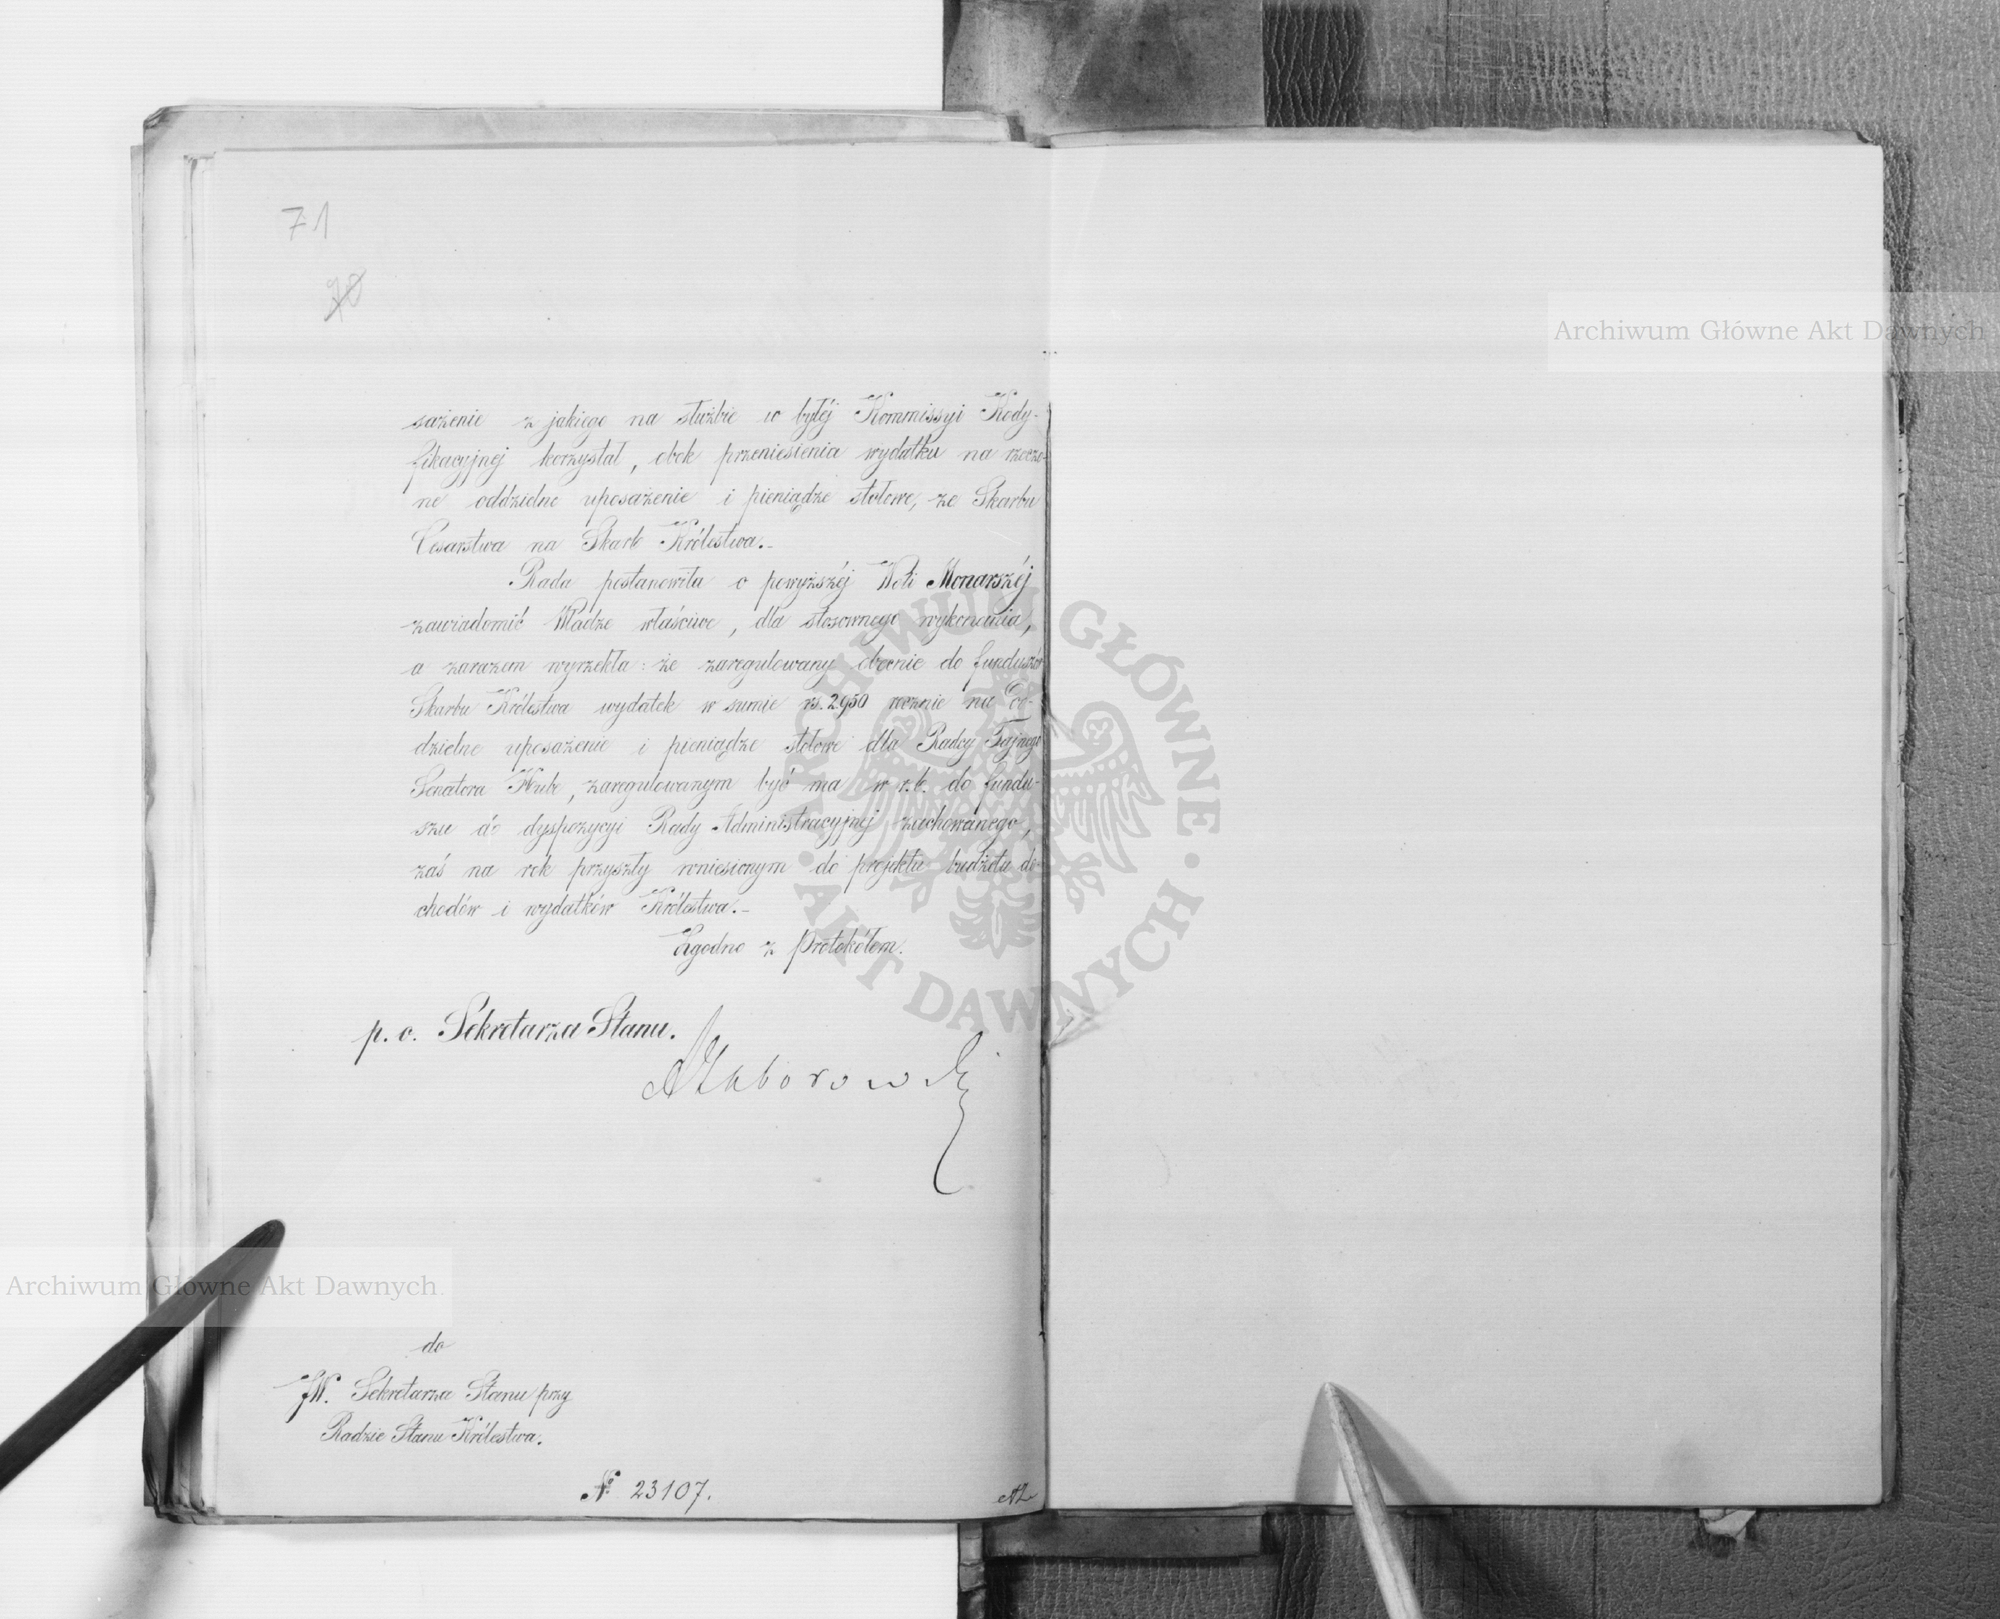 71
70
sażenie z jakiego na służbie w byłéj Kommissyi Kody-
fikacyjnej korzystał, obok przeniesienia wydatku na rzeczo-
ne oddzielne uposażenie i pieniądze stołowe, ze Skarbu
Cesarstwa na Skarb Królestwa.-
Rada postanowiła o powyższéj Woli Monarszéj
zawiadomić Władze właściwe, dla stosownego wykonania,
a zarazem wyrzekła: że zaregulowany obecnie do funduszów
Skarbu Królestwa wydatek w sumie rs. 2950 rocznie na od-
dzielne uposażenie i pieniądze stołowe dla Radcy Tajnego
Senatora Hube, zaregulowanym być ma w r.b. do fundu-
szu do dyspozycyi Rady Administracyjnej zachowanego,
zaś na rok przyszły wniesionym do projektu budżetu do-
chodów i wydatków Królestwa.-
Zgodno z Protokółem.
p. o. Sekretarza Stanu.
AZaborowski
do
JW. Sekretarza Stanu przy
Radzie Stanu Królestwa.
№ 23107.
Archiwum Główne Akt Dawnych
Archiwum Główne Akt Dawnych
ARCHIWUM GŁÓWNE
AKT DAWNYCH